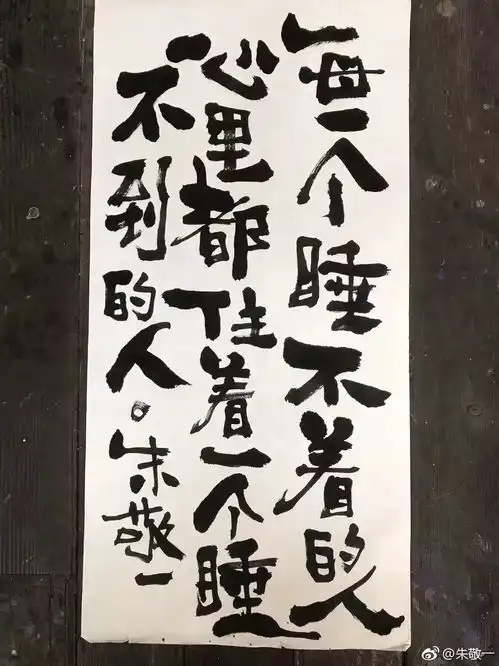 每一个睡不着的人
心里都住着一个睡
不到的人。朱敬一
@朱敬一